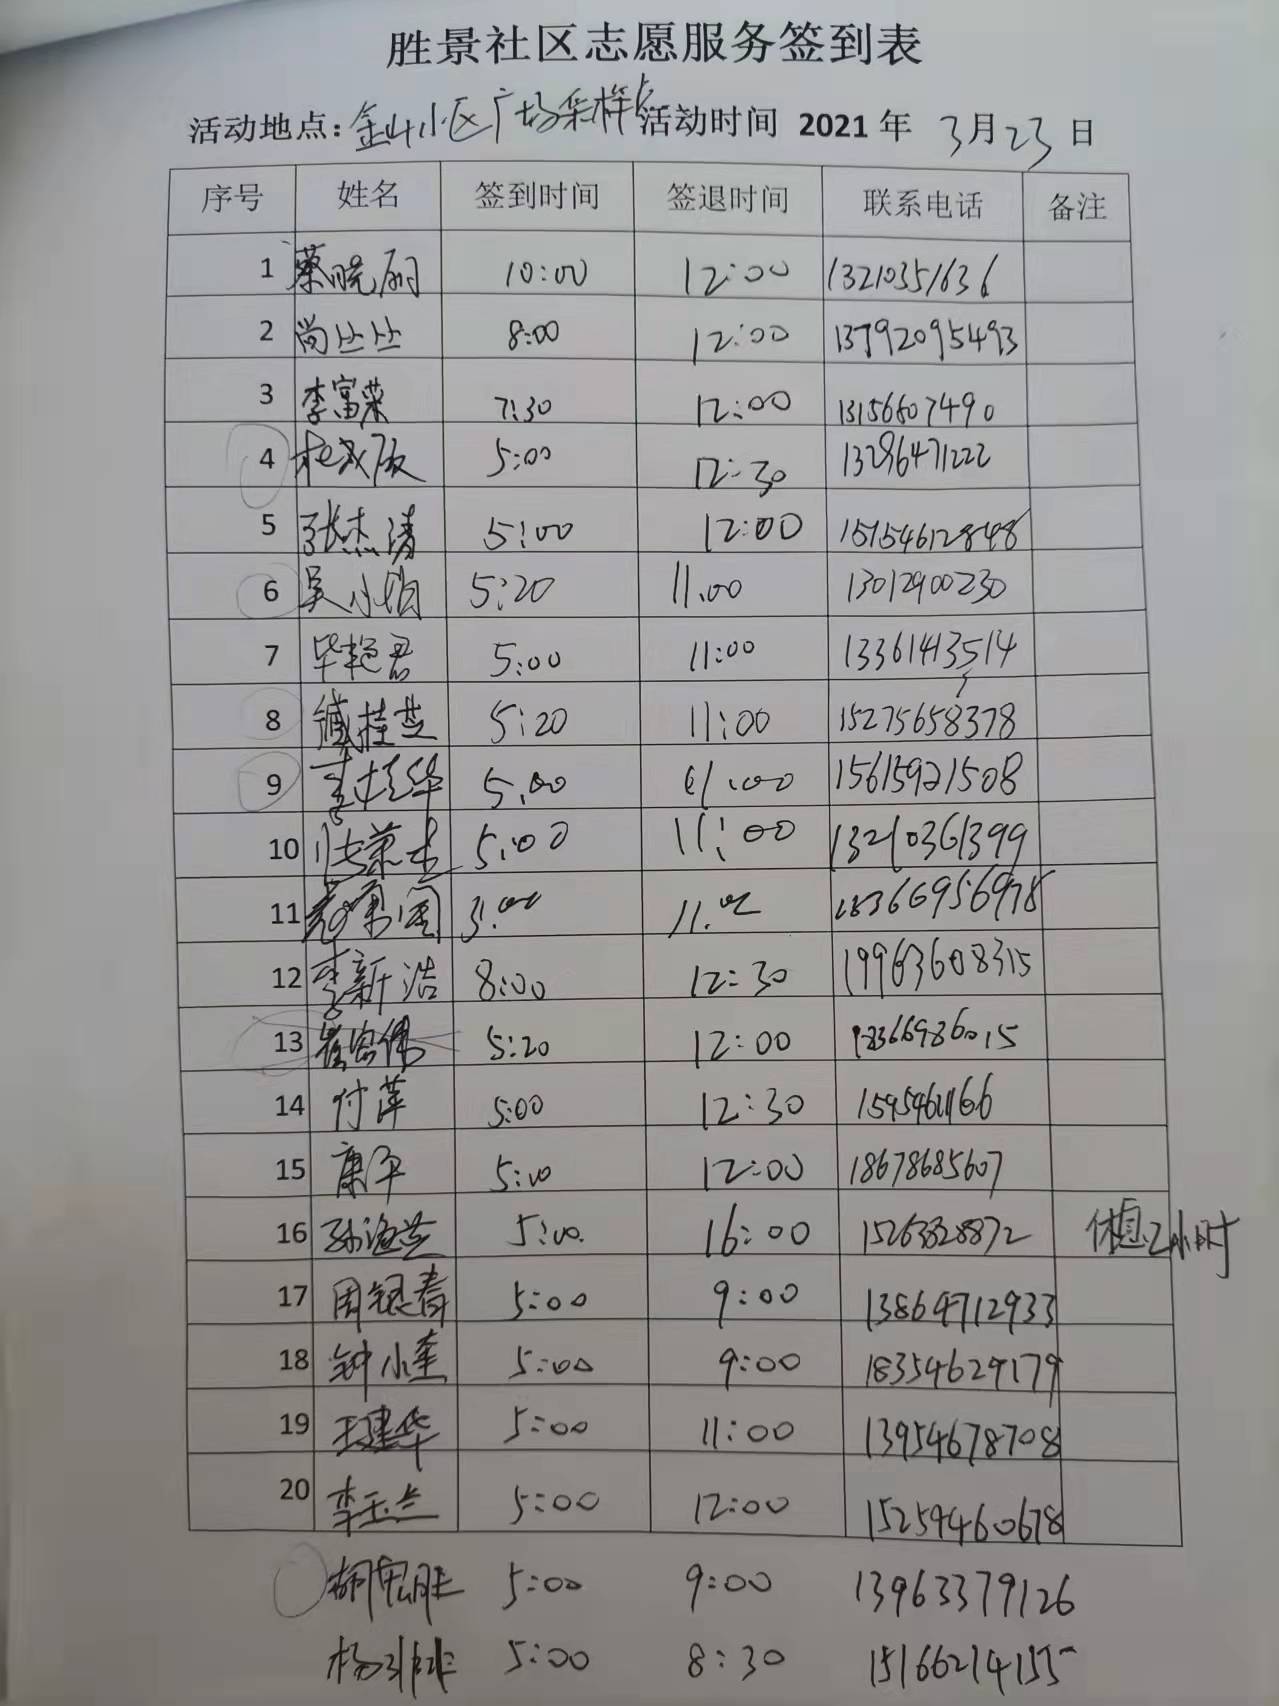 胜景社区志愿服务签到表
活动地点：金山小区广场采样点 活动时间 2021 年 3月23 日
序号 姓名 签到时间 签退时间 联系电话 备注
1 蔡晓丽 10:00 12:00 13210351636
2 尚丛丛 8:00 12:00 13792095493
3 李富荣 7:30 12:00 13156607490
4 5:00 12:30 13296471222
5 张杰清 5:00 12:00
6 吴小娟 5:20 11.00 13012900230
7 毕艳君 5:00 11:00 13361413514
8 臧桂芝 5:20 11:00 15275658378
9 李桂华 5.00 15615921508
10 5:00 11:00 13210361399
11 11.00 18366956978
12 李新浩 8:00 12:30 19963608315
13 崔宏伟 5:20 12:00 18366986015
14 付萍 5:00 12:30 15954611166
15 康平 5:00 12:00 18678685607
16 孙海芝 5:00. 16:00 休息2小时
17 周银春 5:00 9:00 13864712933
18 钟小奎 5:00 9:00 18354629179
19 王建华 5:00 11:00 13954678708
20 李玉兰 5:00 12:00 15259460678
胡宪胜 5:00 9:00 13963379126
杨 5:00 8:30 15166214155